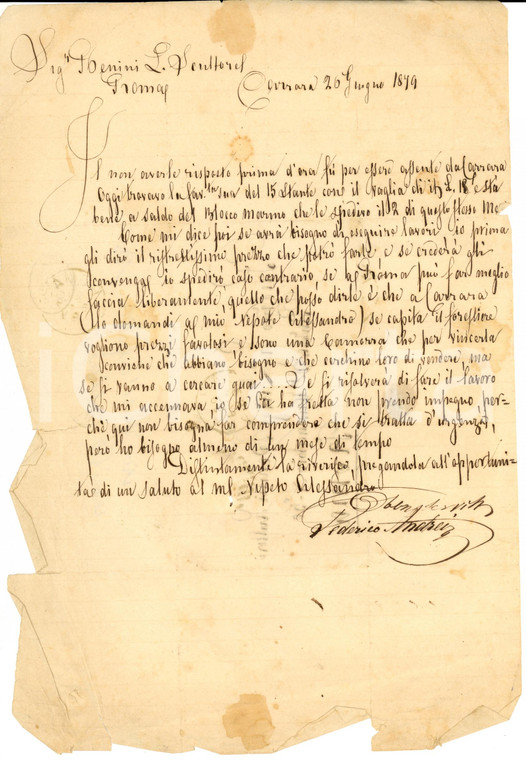 Sigr Menini L. Scultore
Roma
Carrara 26 Giugno 1879
Il non averle risposto prima d'ora fù per essere assente da Carrara
Oggi trovavo la fav. sua del 15 stante con il vaglia di it. L. 18 e sta
bene a saldo del Blocco marmo che le spedivo il 2 di questo stesso Me
Come mi dice poi se avrà bisogno di eseguire lavori io prima
gli dirò il ristrettissimo prezzo che potrò farle, e se crederà gli
convenga io spedirò caso contrario se a Roma può far meglio
faccia liberamente, quello che posso dirle è che a Carrara
(lo domandi al mio Nepote Alessandro) se capita il forestiere
vogliono prezzi favolosi e sono una Camorra che per vincerla
conviene che abbiano bisogno e che cerchino loro di vendere, ma
se si vanno a cercare guai.... E si risolverà di fare il lavoro
che mi accennava, io se Lei ha fretta non prendo impegno, per-
chè qui non bisogna far comprendere che si tratta d'urgenza,
però ho bisogno almeno di un mese di tempo
Distintamente la riverisco pregandola all'opportuni-
tà di un saluto al mio Nepote Alessandro
Federico Andrei